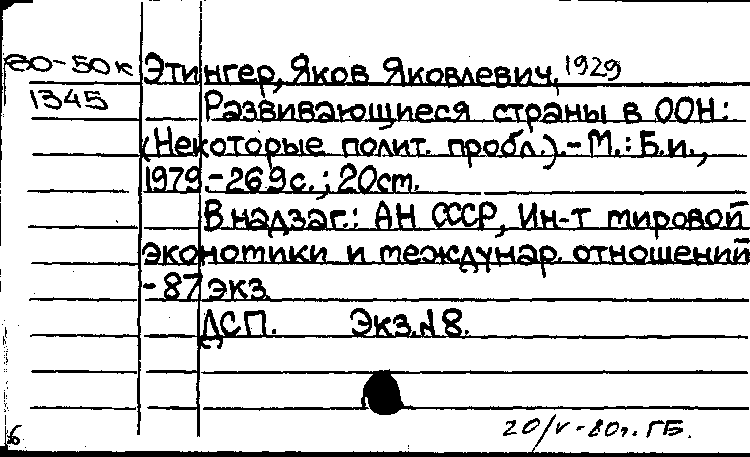 80-50к Этингер, Яков Яковлевич, 1929
1345 Развивающиеся страны в ООН:
(Некоторые полит. пробл.).-М.: Б.и.,
1979.-269с.; 20см.
В надзаг.: АН СССР, Ин-т мировой
экономики и междунар. отношений
-87экз.
ДСП. Экз.N8.
20/V-80г. ГБ.
6